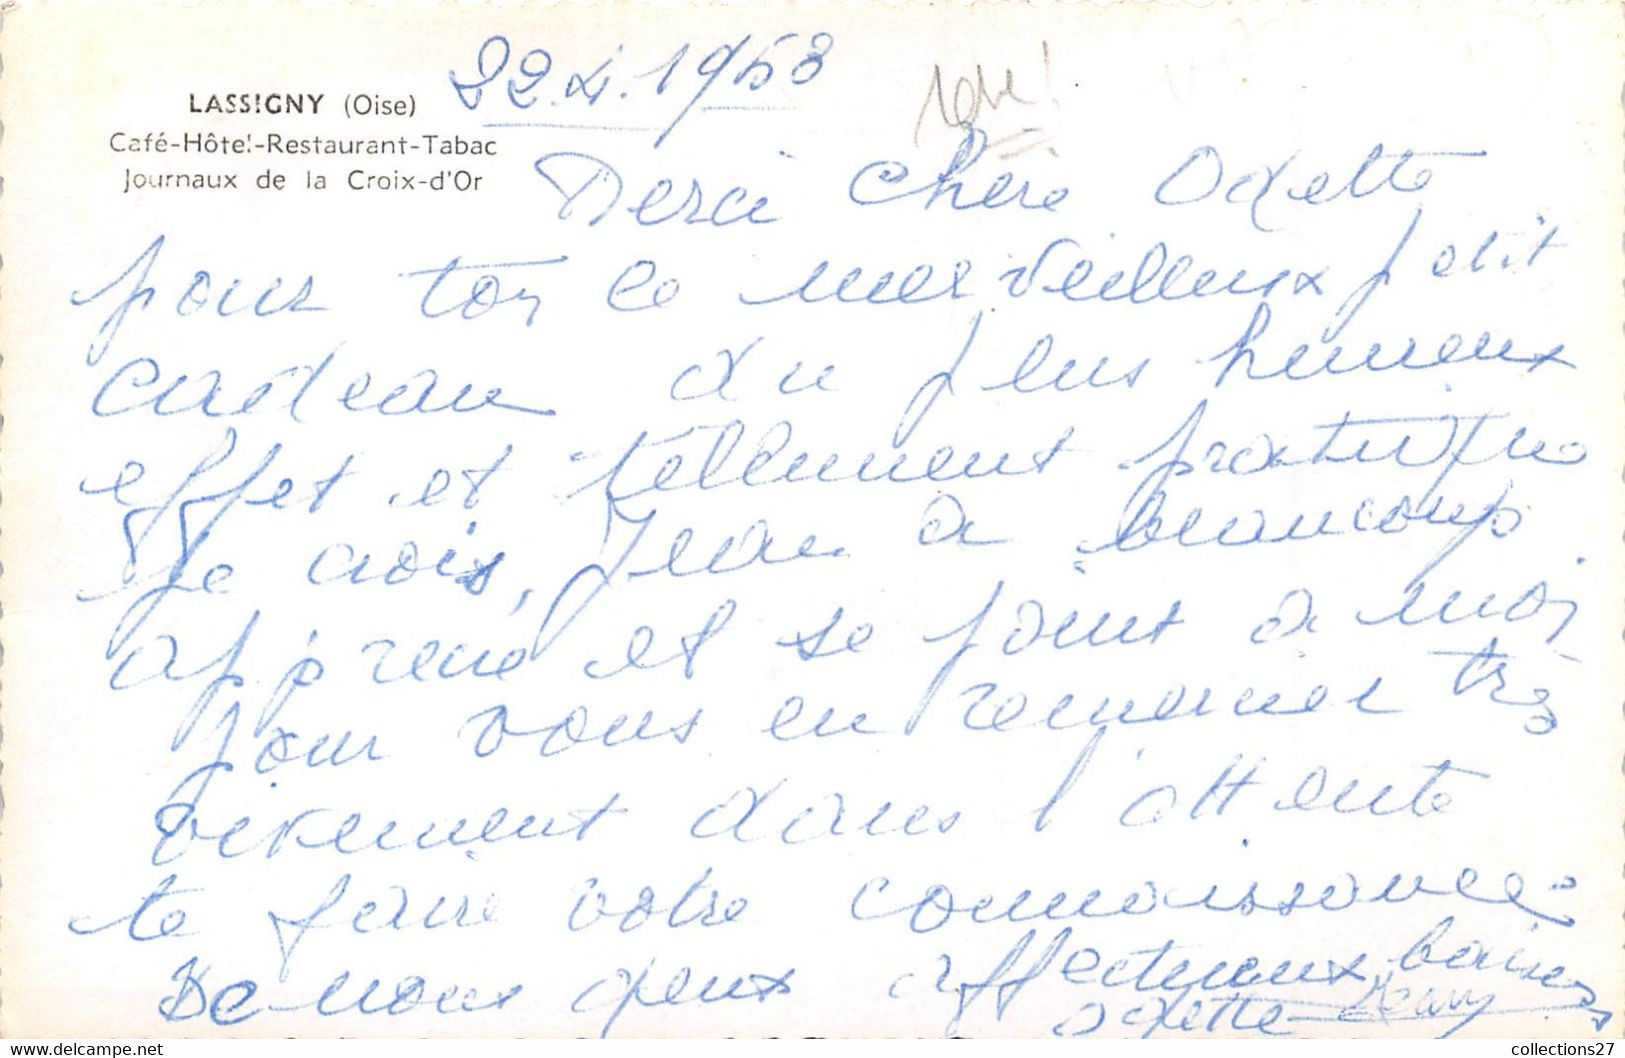 22.4.1958
LASSIGNY (Oise)
Café-Hôtel-Restaurant-Tabac
Journaux de la Croix-d'Or
Merci chère Odette
pour ton ce merveilleux petit
cadeau du plus heureux
effet et tellement pratique
je crois, Jean a beaucoup
apprécié et se joint à moi
pour vous en remercier très
vivement dans l'attente
te faire votre connaissance.
De nous deux affectueux baisers
Odette
collections27